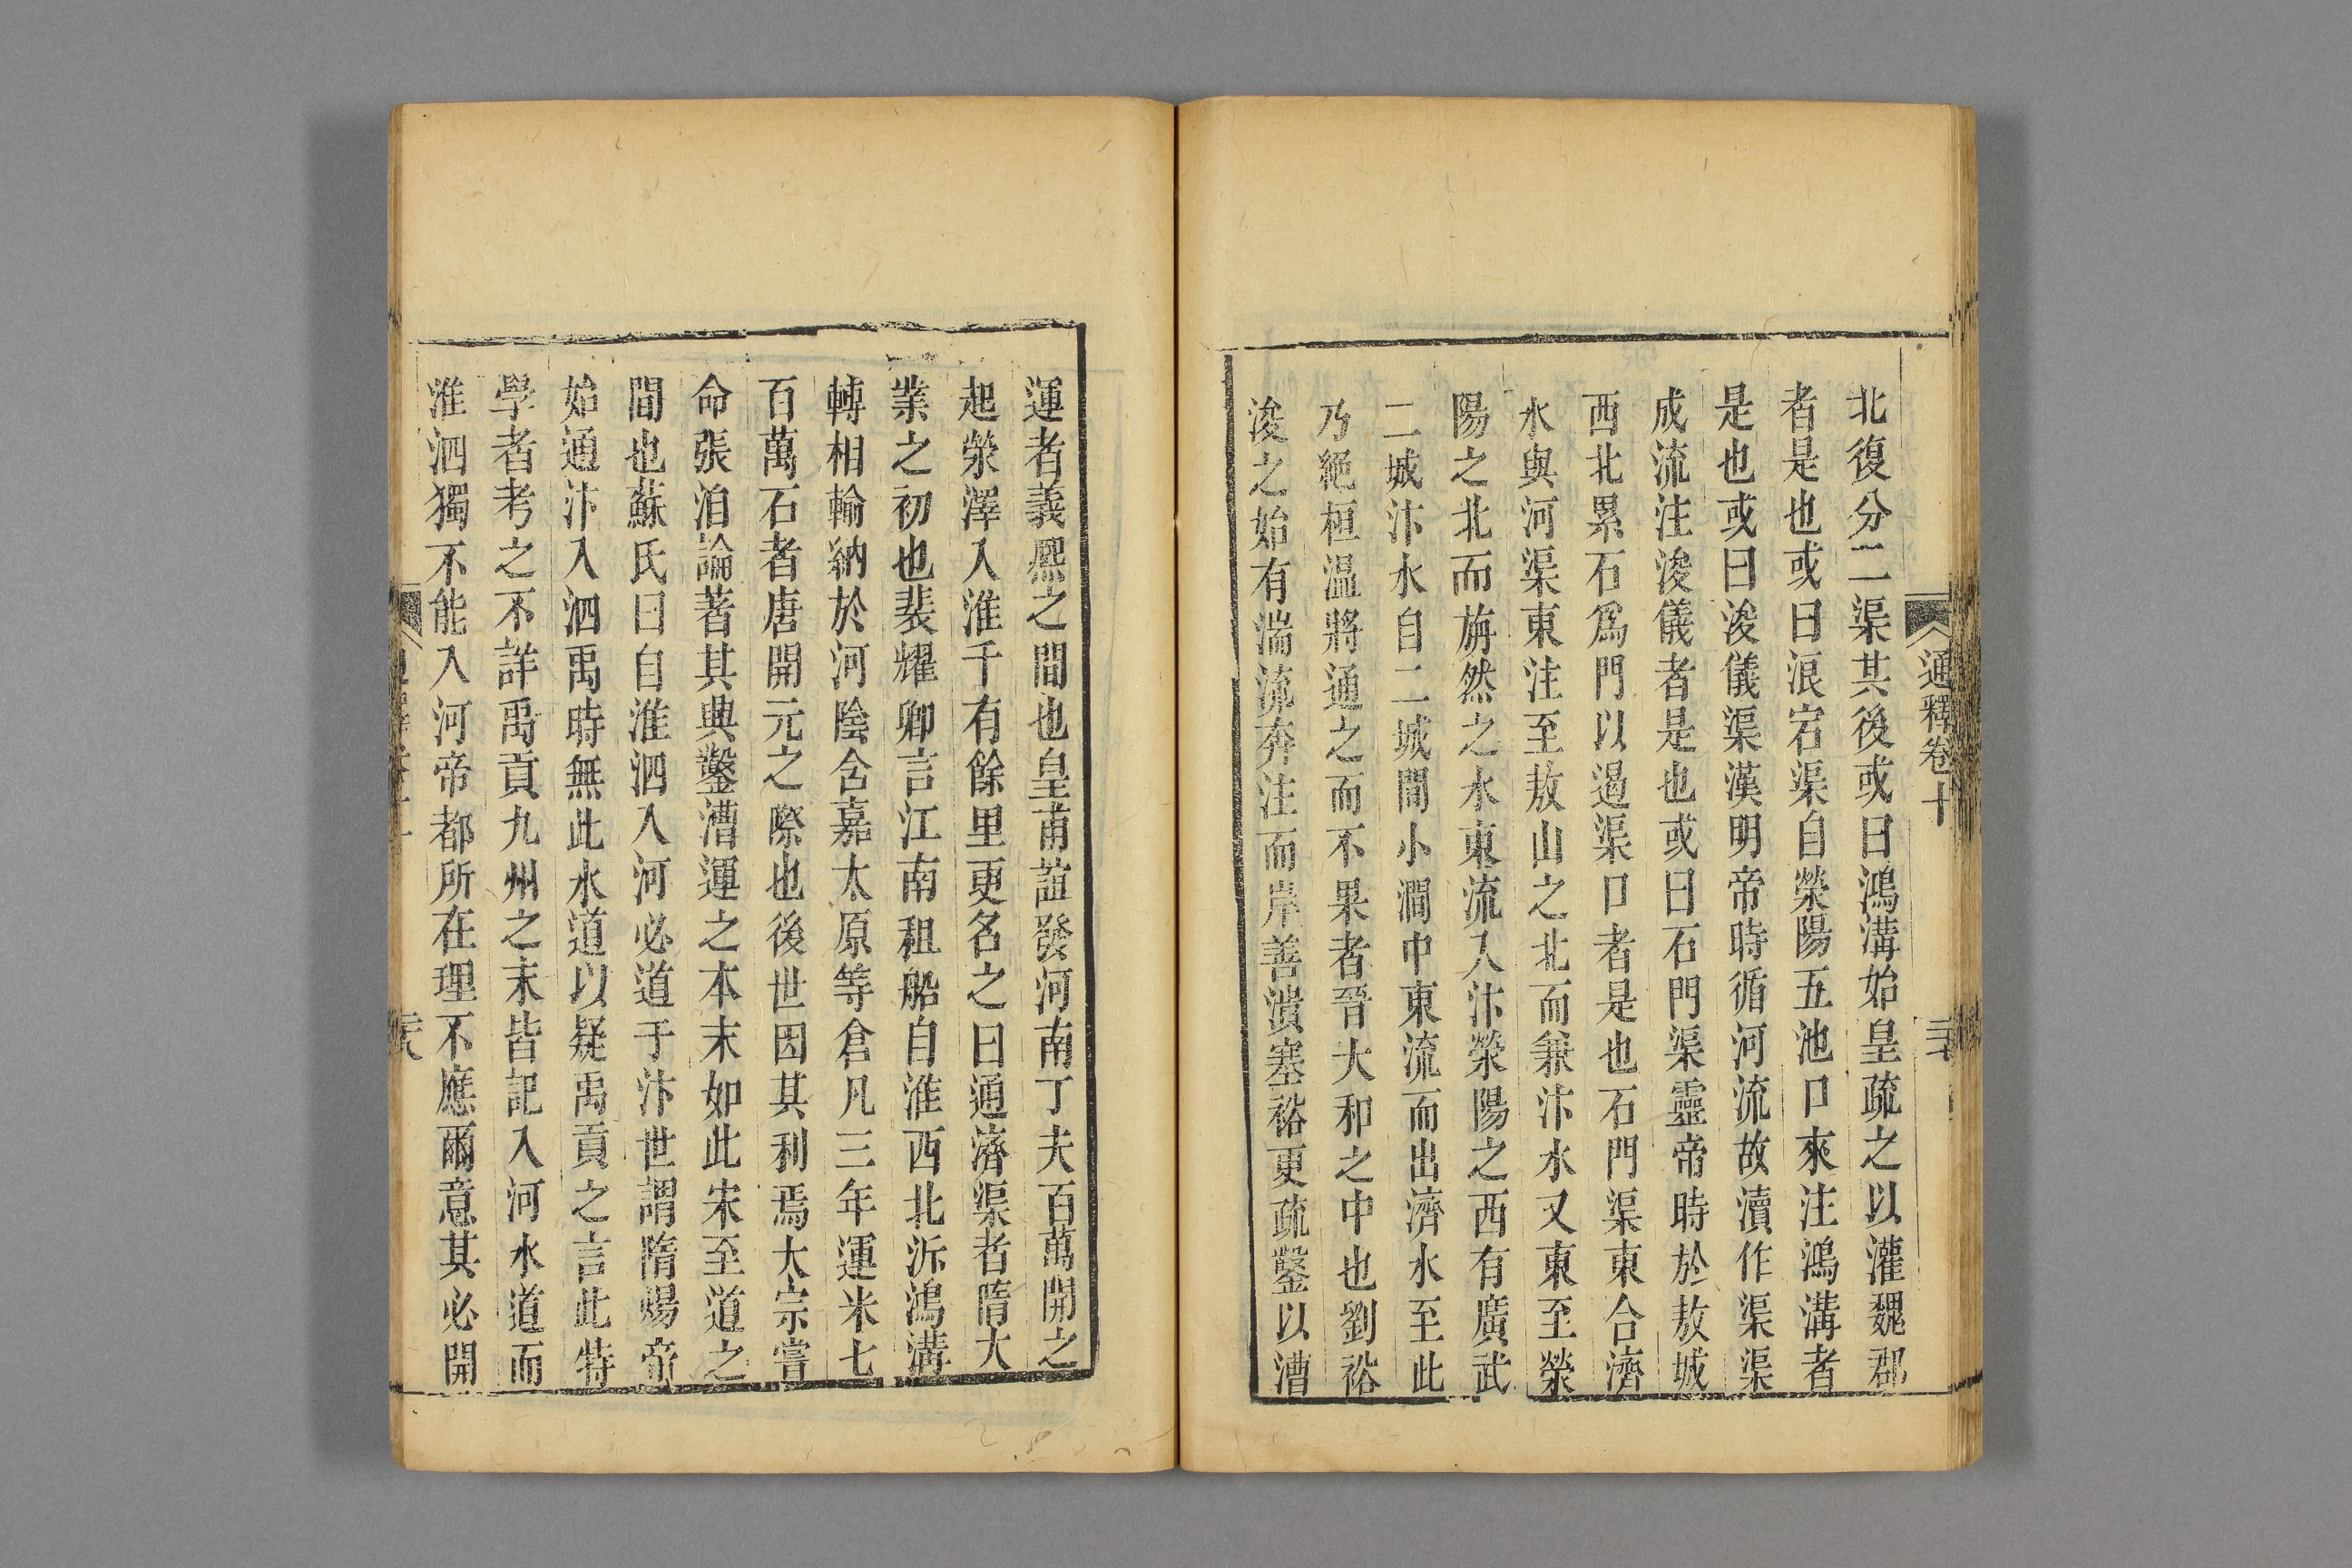 通釋卷十
北復分二渠其後或曰鴻溝始皇疏之以灌魏郡
者是也或曰浪宕渠自滎陽五池口來注鴻溝者
是也或曰浚儀渠漢明帝時循河流故瀆作渠渠
成流注浚儀者是也或曰石門渠靈帝時於敖城
西北累石爲門以遏渠口者是也石門渠東合濟
水與河渠東注至敖山之北而兼汴水又東至滎
陽之北而旃然之水東流入汴滎陽之西有廣武
二城汴水自二城間小澗中東流而出濟水至此
乃絕桓溫將通之而不果者晉大和之中也劉裕
浚之始有湍流奔注而岸善潰塞裕更疏鑿以漕
運者義熙之間也皇甫誼發河南丁夫百萬開之
起滎澤入淮千有餘里更名之曰通濟渠者隋大
業之初也裴耀卿言江南租船自淮西北泝鴻溝
轉相輸納於河陰含嘉太原等倉凡三年運米七
百萬石者唐開元之際也後世因其利焉大宗嘗
命張洎論著其典鑿漕運之本末如此宋至道之
間也蘇氏曰自淮泗入河必道于汴世謂隋煬帝
始通汴入泗禹時無此水道以疑禹貢之言此特
學者考之不詳禹貢九州之末皆記入河水道而
淮泗獨不能入河帝都所在理不應爾意其必開